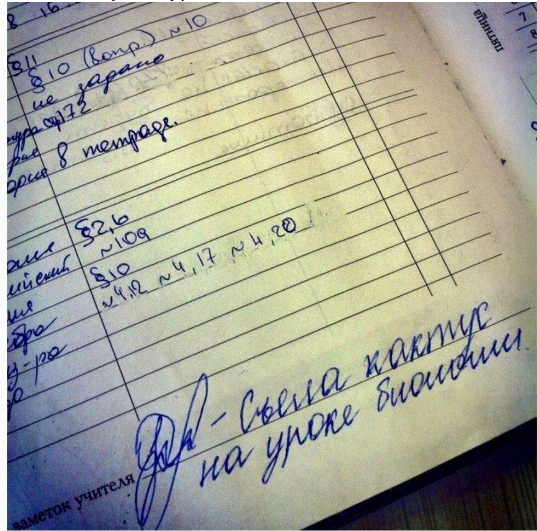 8 16
§11
§10 (вопр.) №10
не задано
стр172
В тетраде.
§2,6
№10а
§10
№4,12 №4,17 №4,20
- Съела кактус
на уроке биологии.
заметок учителя
пятница
7
8